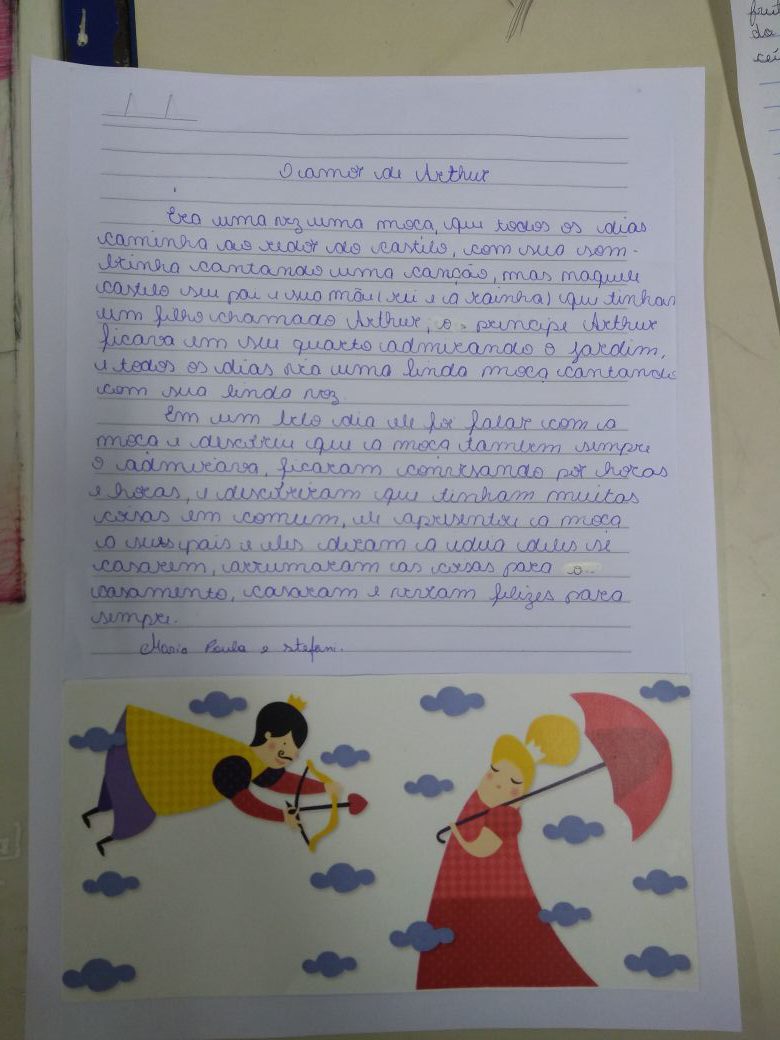 O amor de Arthur
Era uma vez uma moça, que todos os dias
caminha ao redor do castelo, com sua som-
brinha cantando uma canção, mas naquele
castelo seu pai e sua mãe (rei e a rainha) que tinham
um filho chamado Arthur, o principe Arthur
ficava em seu quarto admirando o jardim,
e todos os dias via uma linda moça cantando
com sua linda voz.
Em um belo dia ele foi falar com a
moça e descobriu que a moça também sempre
o admirava, ficaram conversando por horas
e horas, e descobriram que tinham muitas
coisas em comum, ele apresentou a moça
a seus pais e eles deram a ideia deles se
casarem, arrumaram as coisas para o
casamento, casaram e viveram felizes para
sempre.
Maria Paula e Stefani.